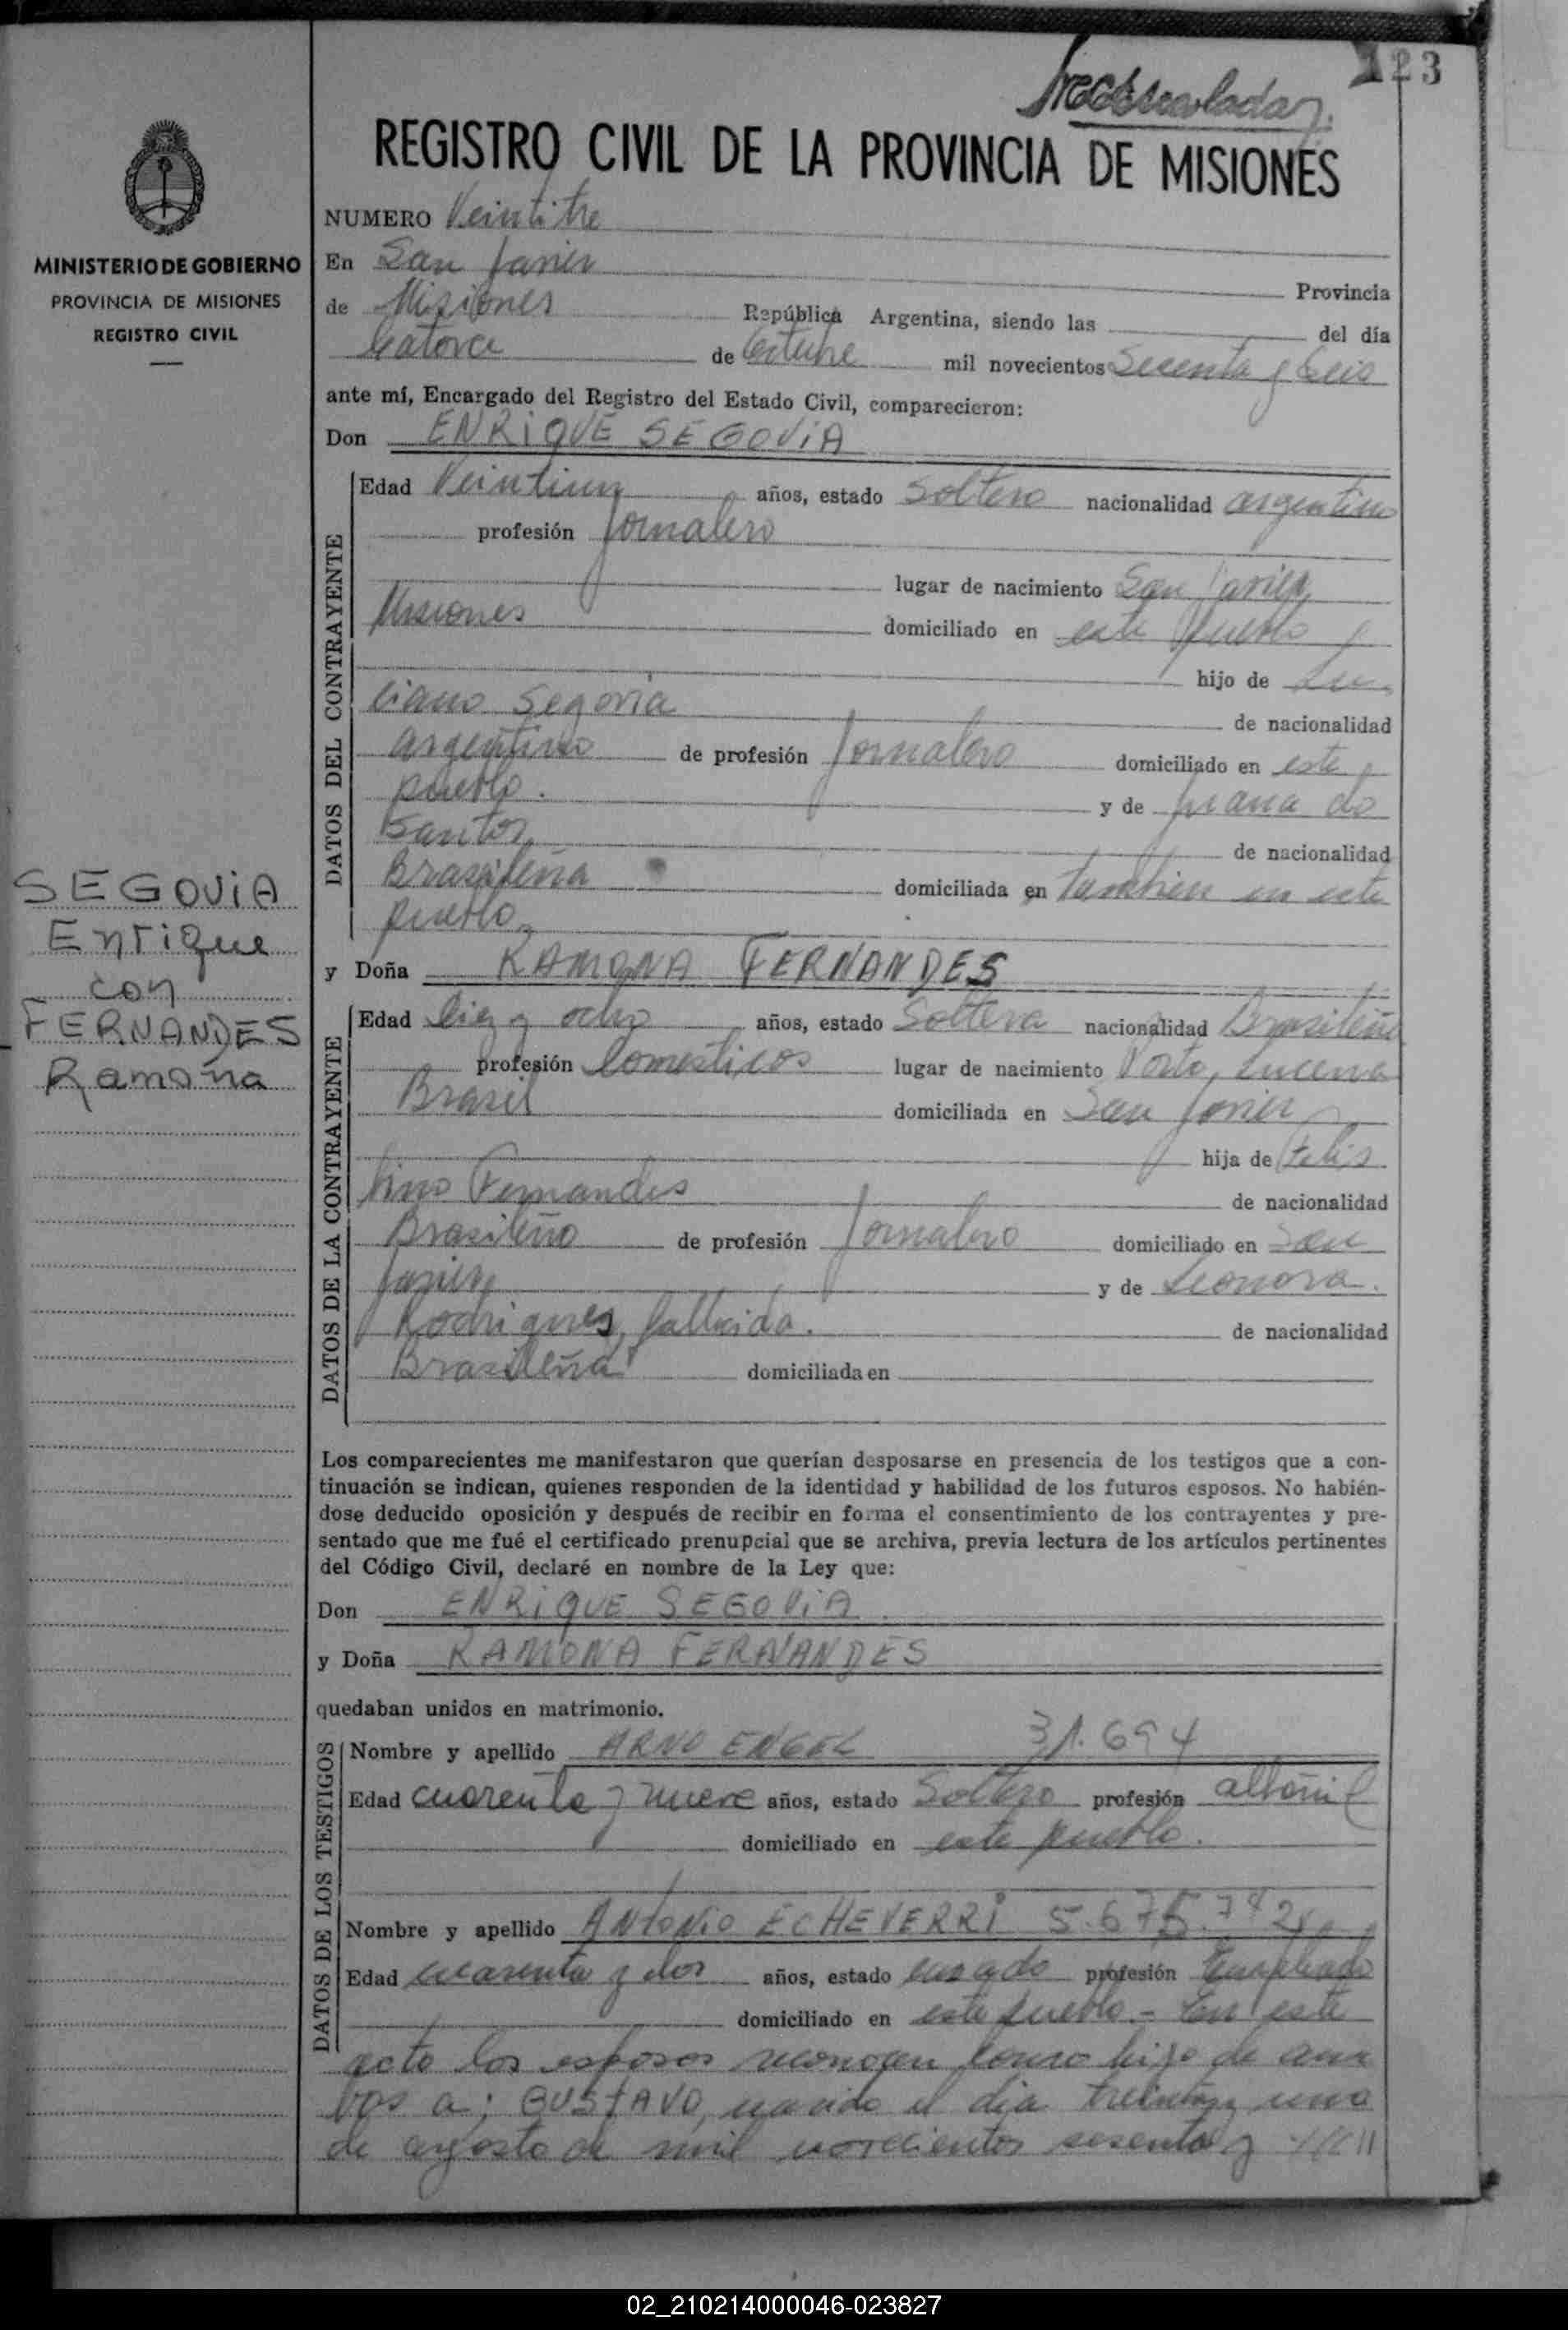 123
REGISTRO CIVIL DE LA PROVINCIA DE MISIONES
NUMERO Veintitre
MINISTERIO DE GOBIERNO
PROVINCIA DE MISIONES
REGISTRO CIVIL
En San Javier Provincia
de Misiones República Argentina, siendo las del día
Catorce de Octubre mil novecientos Sesenta y Seis
ante mí, Encargado del Registro del Estado Civil, comparecieron:
Don ENRIQUE SEGOVIA
DATOS DEL CONTRAYENTE
Edad Veintiun años, estado Soltero nacionalidad argentino
profesión Jornalero
lugar de nacimiento San Javier
Misiones domiciliado en este pueblo
hijo de Lu-
ciano Segovia de nacionalidad
argentino de profesión Jornalero domiciliado en este
pueblo. y de Juana do
Santos de nacionalidad
Brasileña domiciliada en tambien en este
pueblo
SEGOVIA
Enrique
con
FERNANDES
Ramona
y Doña RAMONA FERNANDES
DATOS DE LA CONTRAYENTE
Edad Diez y ocho años, estado Soltera nacionalidad Brasileña
profesión Domesticos lugar de nacimiento Porto Lucena
Brasil domiciliada en San Javier
hija de Felis
bino Fernandes de nacionalidad
Brasileño de profesión Jornalero domiciliado en San
Javier y de Leonora.
Rodrigues, fallecida. de nacionalidad
Brasileña domiciliada en
Los comparecientes me manifestaron que querían desposarse en presencia de los testigos que a con-
tinuación se indican, quienes responden de la identidad y habilidad de los futuros esposos. No habién-
dose deducido oposición y después de recibir en forma el consentimiento de los contrayentes y pre-
sentado que me fué el certificado prenupcial que se archiva, previa lectura de los artículos pertinentes
del Código Civil, declaré en nombre de la Ley que:
Don ENRIQUE SEGOVIA
y Doña RAMONA FERNANDES
quedaban unidos en matrimonio.
DATOS DE LOS TESTIGOS
Nombre y apellido ARNO ENGEL 31.694
Edad cuarenta y nueve años, estado Soltero profesión albañil
domiciliado en este pueblo.
Nombre y apellido ANTONIO ECHEVERRI 5.675.742
Edad cuarenta y dos años, estado casado profesión Empleado
domiciliado en este pueblo.- En este
acto los esposos reconocen como hijo de am
bos a; GUSTAVO, nacido el dia treinta y uno
de agosto de mil novecientos sesenta y
02_210214000046-023827